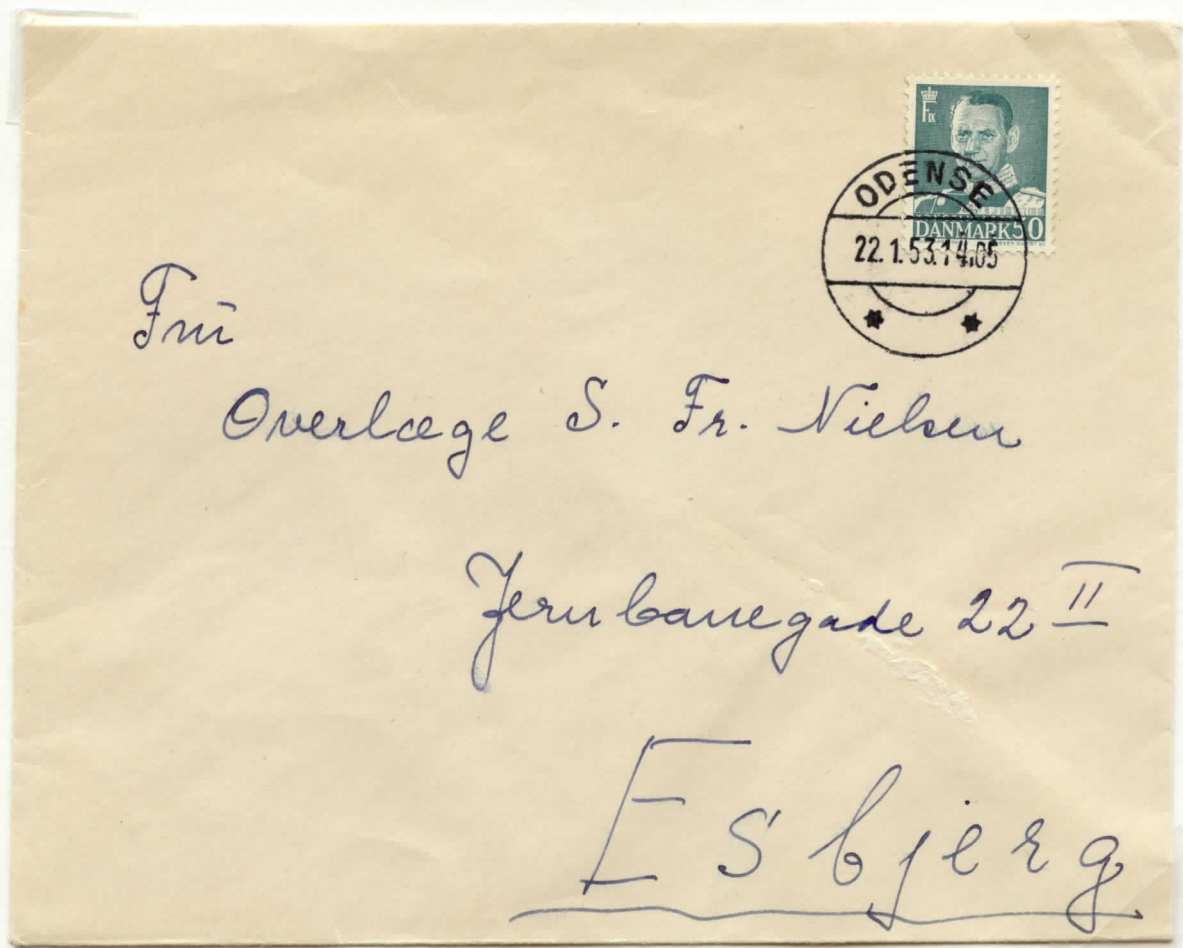 F IX
DANMARK 50
ODENSE
22.1.53.14.05
Frū
Overlæge S. Fr. Nielsen
Jernbanegade 22 II
Esbjerg